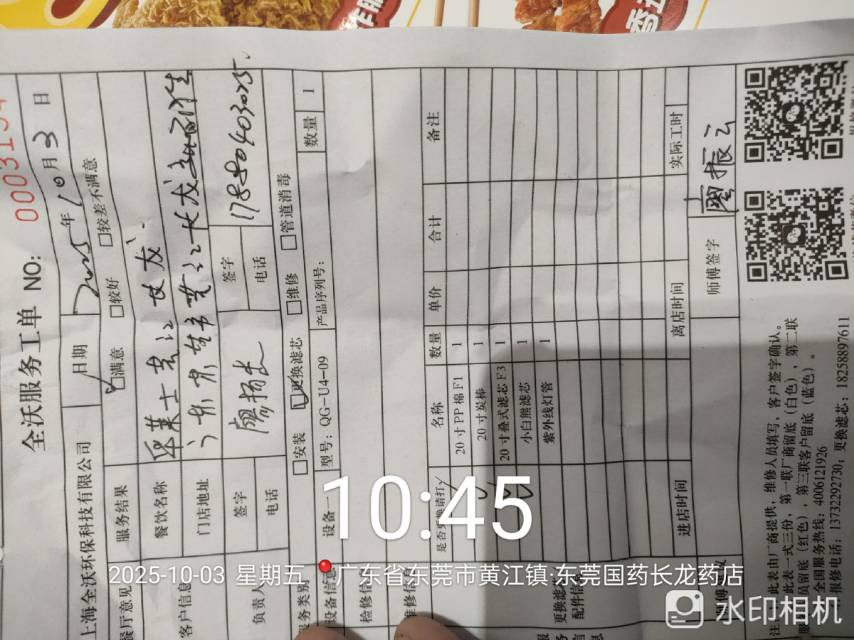 全沃服务工单 NO: 0003154
上海全沃环保科技有限公司 日期 2025年10月3日
餐厅意见 服务结果 ☑满意 □较好 □较差不满意
客户信息 餐饮名称
门店地址
负责人 签字 签字
电话 电话 17880403025
服务类别 □安装 ☑更换滤芯 □维修 □管道消毒
设备信息 设备一 型号: QG-U4-09 产品序列号: 数量 1
检修信息
维修信息
名称 数量 单价 合计 备注
20寸PP棉F1 1
20寸炭棒 1
20寸叠式滤芯F3 1
小白熊滤芯 1
紫外线灯管 1
更换滤芯
配件信息
进店时间 离店时间 实际工时
师傅签字 廖振云
注: 此表由厂商提供, 维修人员填写, 客户签字确认。
此表一式三份, 第一联厂商留底(白色), 第二联
留底(红色), 第三联客户留底(蓝色)。
全国服务热线: 4006121926
报修电话: 13732292730, 更换滤芯: 18258897611
10:45
2025-10-03 星期五 广东省东莞市黄江镇·东莞国药长龙药店
水印相机